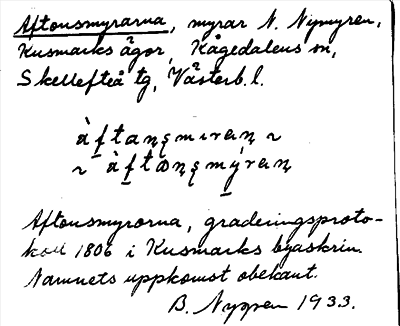 Aftonsmyrarna, myrar N. Nymyren,
Kusmarks ägor, Kågedalens sn,
Skellefteå tg, Västerb. l.
àftaṇʂmıraṇ ~
~ àftɷṇʂmýraṇ
Aftonsmyrorna, graderingsproto-
koll 1806 i Kusmarks byaskrin.
Namnets uppkomst obekant.
B. Nygren 1933.